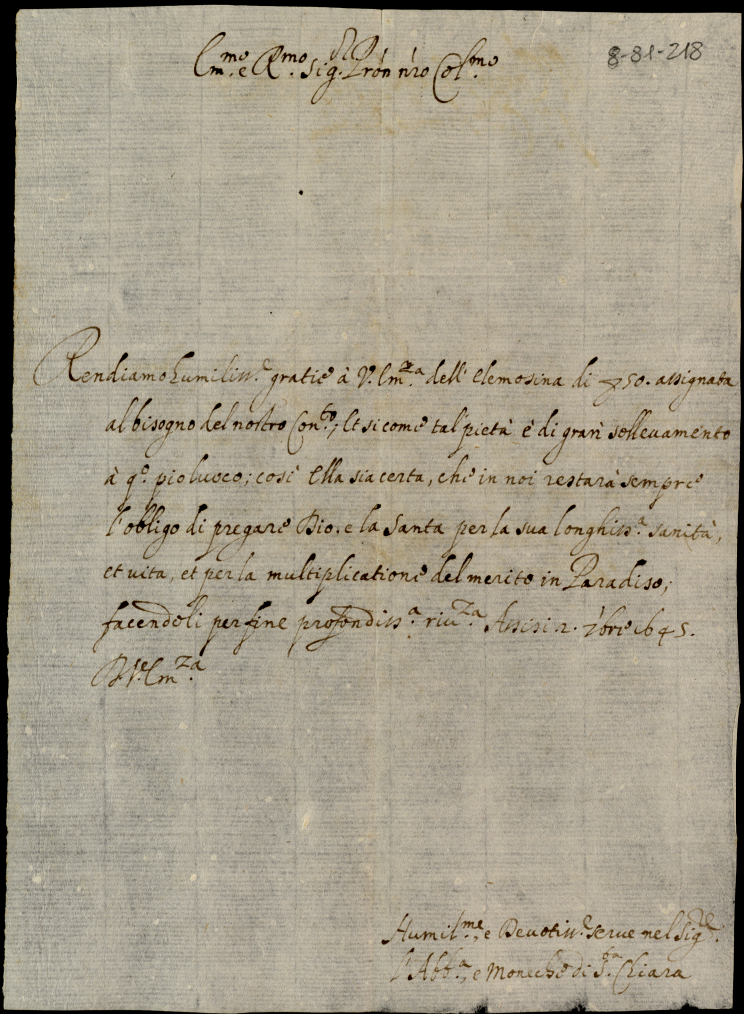 8-81-218
Em.mo e R.mo Sig.r Pron nro Col.mo
Rendiamo humiliss.e gratie à V. Em.za dell' elemosina di 50. assignata
al bisogno del nostro Con.to; Et si come tal pietà è di gran sollevamento
à q.o pio luoco; così Ella sia certa, che in noi restarà sempre
l'obligo di pregare Dio, e la Santa per la sua longhiss.a sanità,
et vita, et per la multiplicatione del merito in Paradiso;
facendoli per fine profondiss.a riv.za Assisi 2. 7bre 1645.
D. V.e Em.za
Humil.me, e Devotiss.e serve nel Sig.re
l'Abb.a, e Moneche di S.ta Chiara